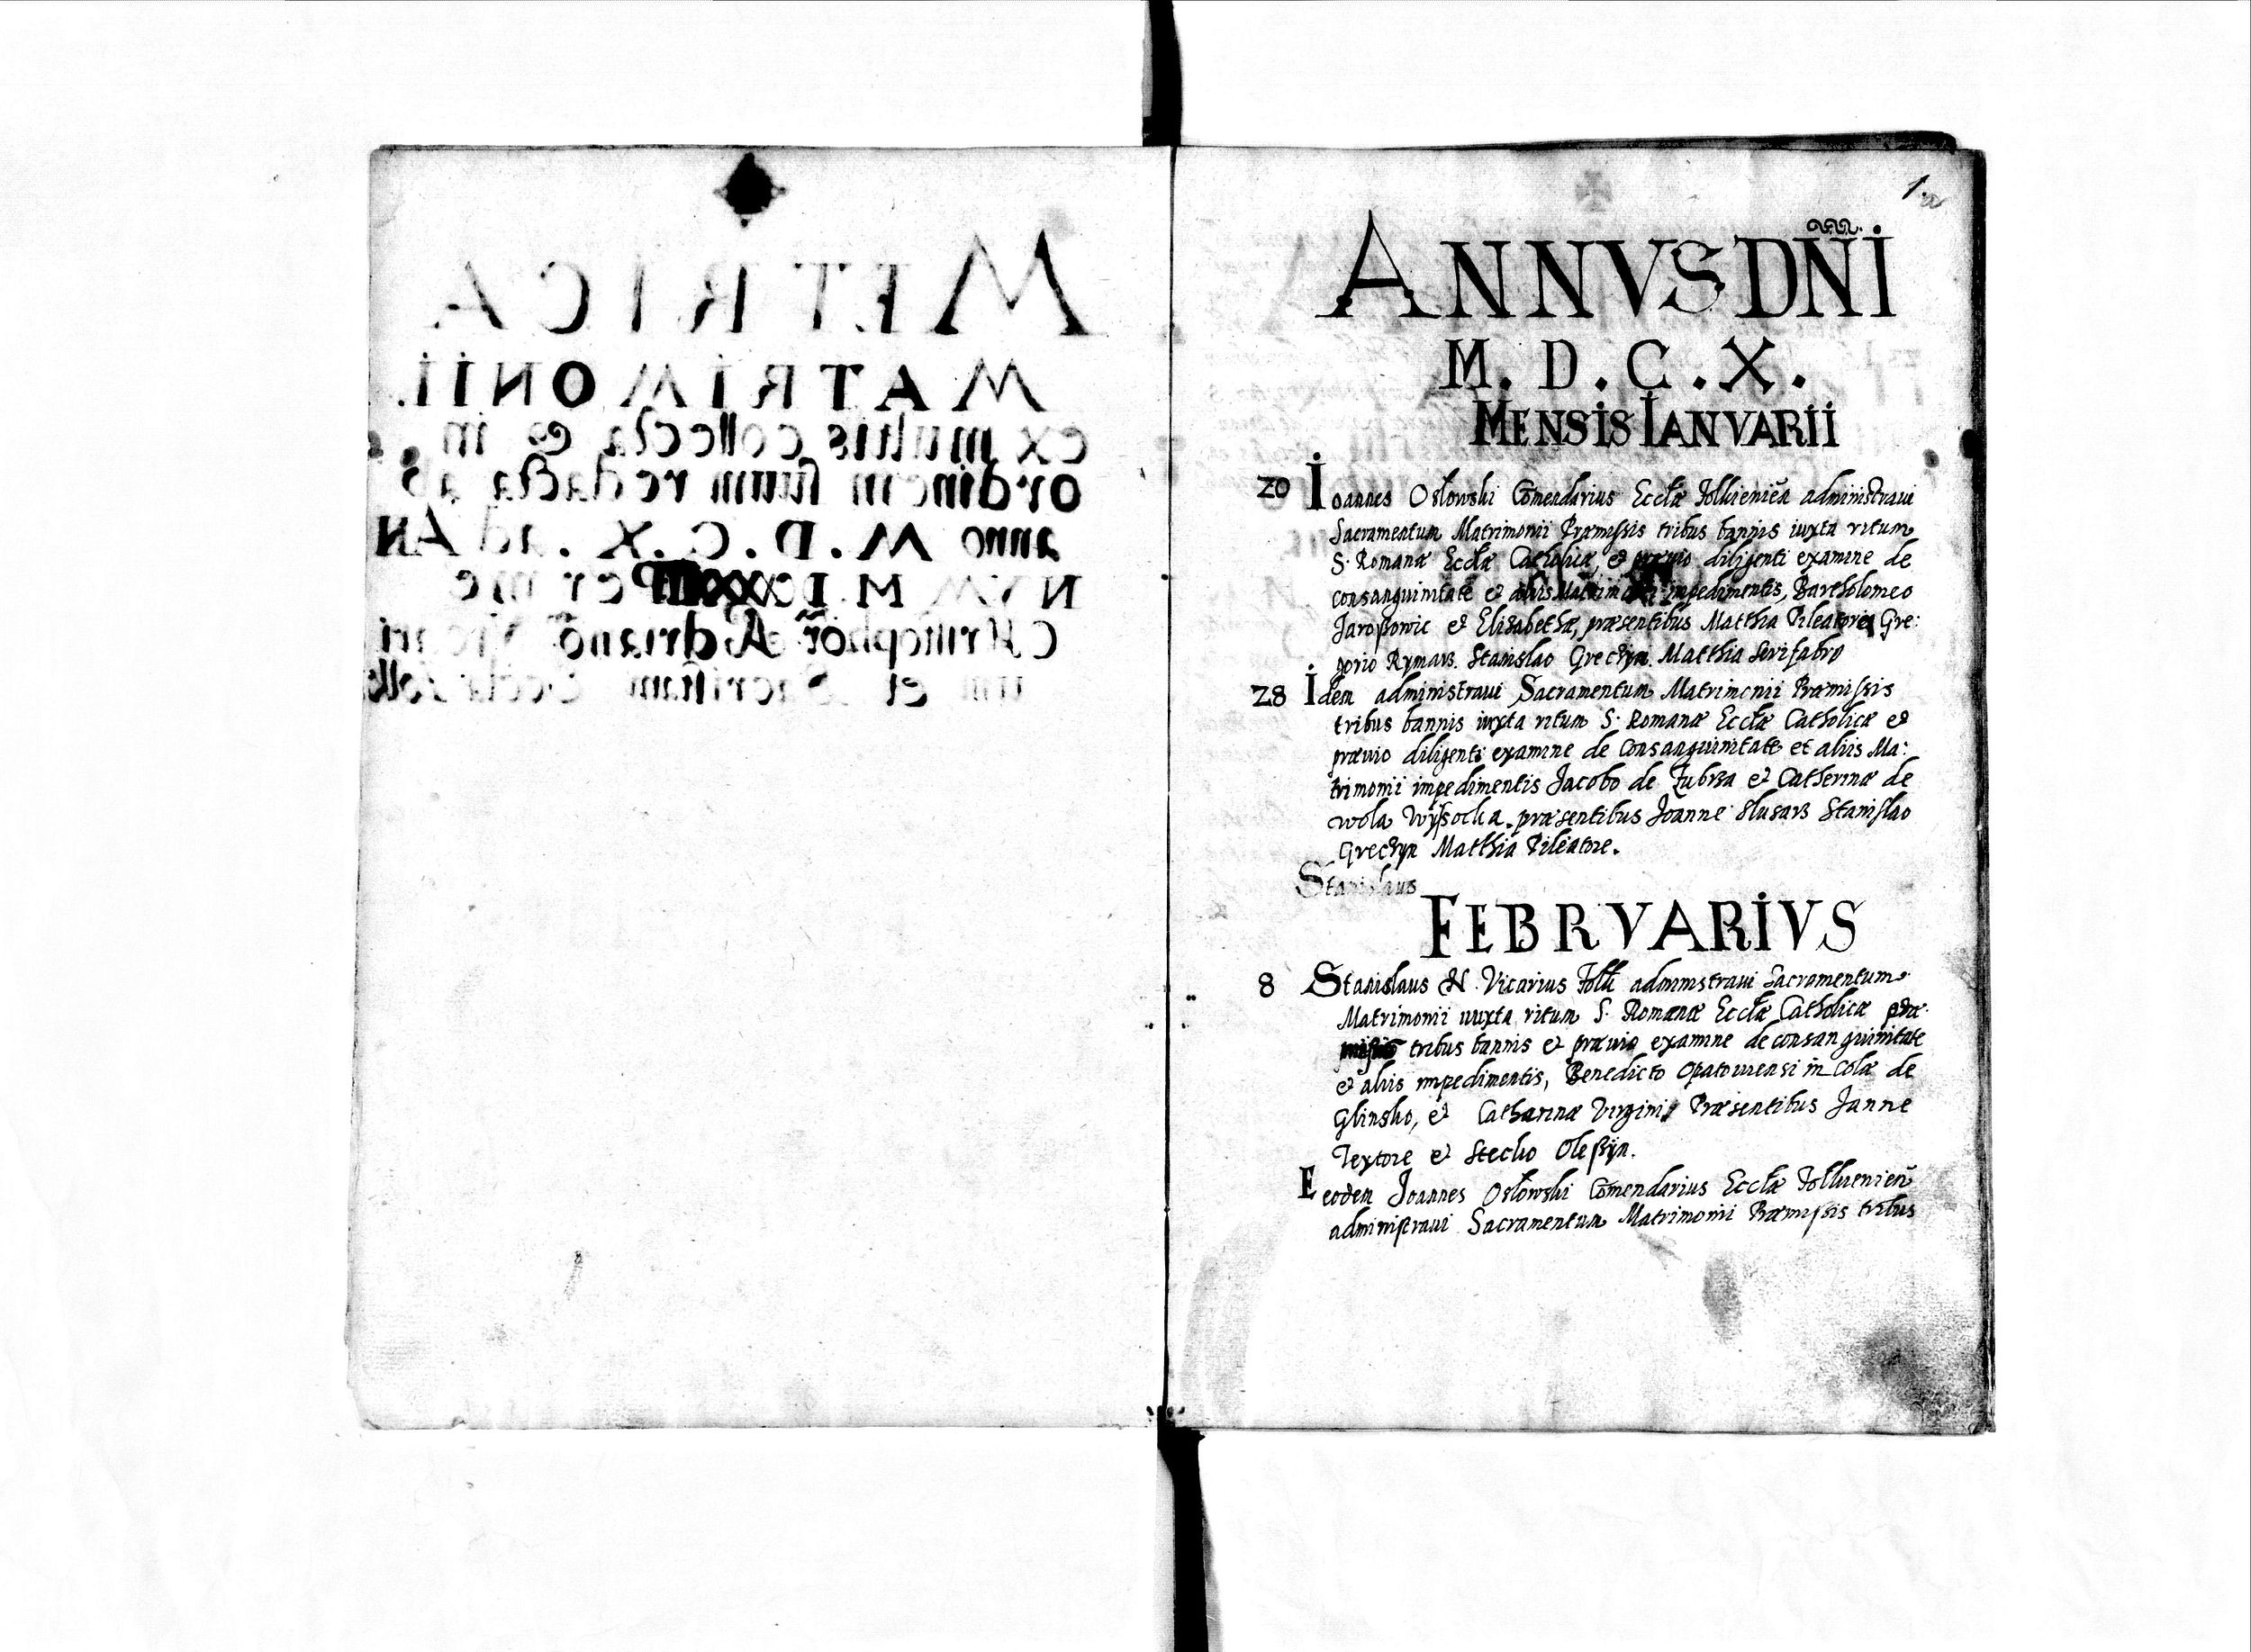 METRICA
MATRIMONII.
ex multis collecta et in
ordinem suum redacta ab
anno M.D.C.X. ad AN
NVM M.DCXX Per me
Christophor Adriano
et Ecclae
1.
ANNVS DNI
M.D.C.X.
MENSIS IANVARII
20 Ioannes Osłowski Comendarius Ecclæ Żołkieniēn administraui
Sacramentum Matrimonii Præmissis tribus bannis iuxta ritum
S. Romanæ Ecclæ Catholicæ, et præuio diligenti examine de
consanguinitate et aliis Matrimonii impedimentis, Bartholomeo
Jaroszowic et Elisabethæ, præsentibus Matthia Pileatore Gre:
gorio Rymarz. Stanislao Grechyn Matthia Serifabro
28 Idem administraui Sacramentum Matrimonii Præmissis
tribus bannis iuxta ritum S. Romanæ Ecclæ Catholicæ et
præuio diligenti examine de Consanguinitate et aliis Ma:
trimonii impedimentis Jacobo de Zubrza et Catherinæ de
wola Wyssocka. præsentibus Joanne Slusarz Stanislao
Grechyn Matthia Pileatore.
Stanislaus
FEBRVARIVS
8 Stanislaus N. Vicarius Żołk administraui Sacramentum
Matrimonii iuxta ritum S. Romanæ Ecclæ Catholicæ præ
missis tribus bannis et præuio examine de consanguinitate
et aliis impedimentis, Benedicto Opatowiensi in Colæ de
Glinsko, et Catharinæ Virginis Præsentibus Janne
Textore et Stecko Oleszyn.
E eodem Joannes Osłowski Comendarius Ecclæ Żołkienień
administraui Sacramentum Matrimonii Præmissis tribus